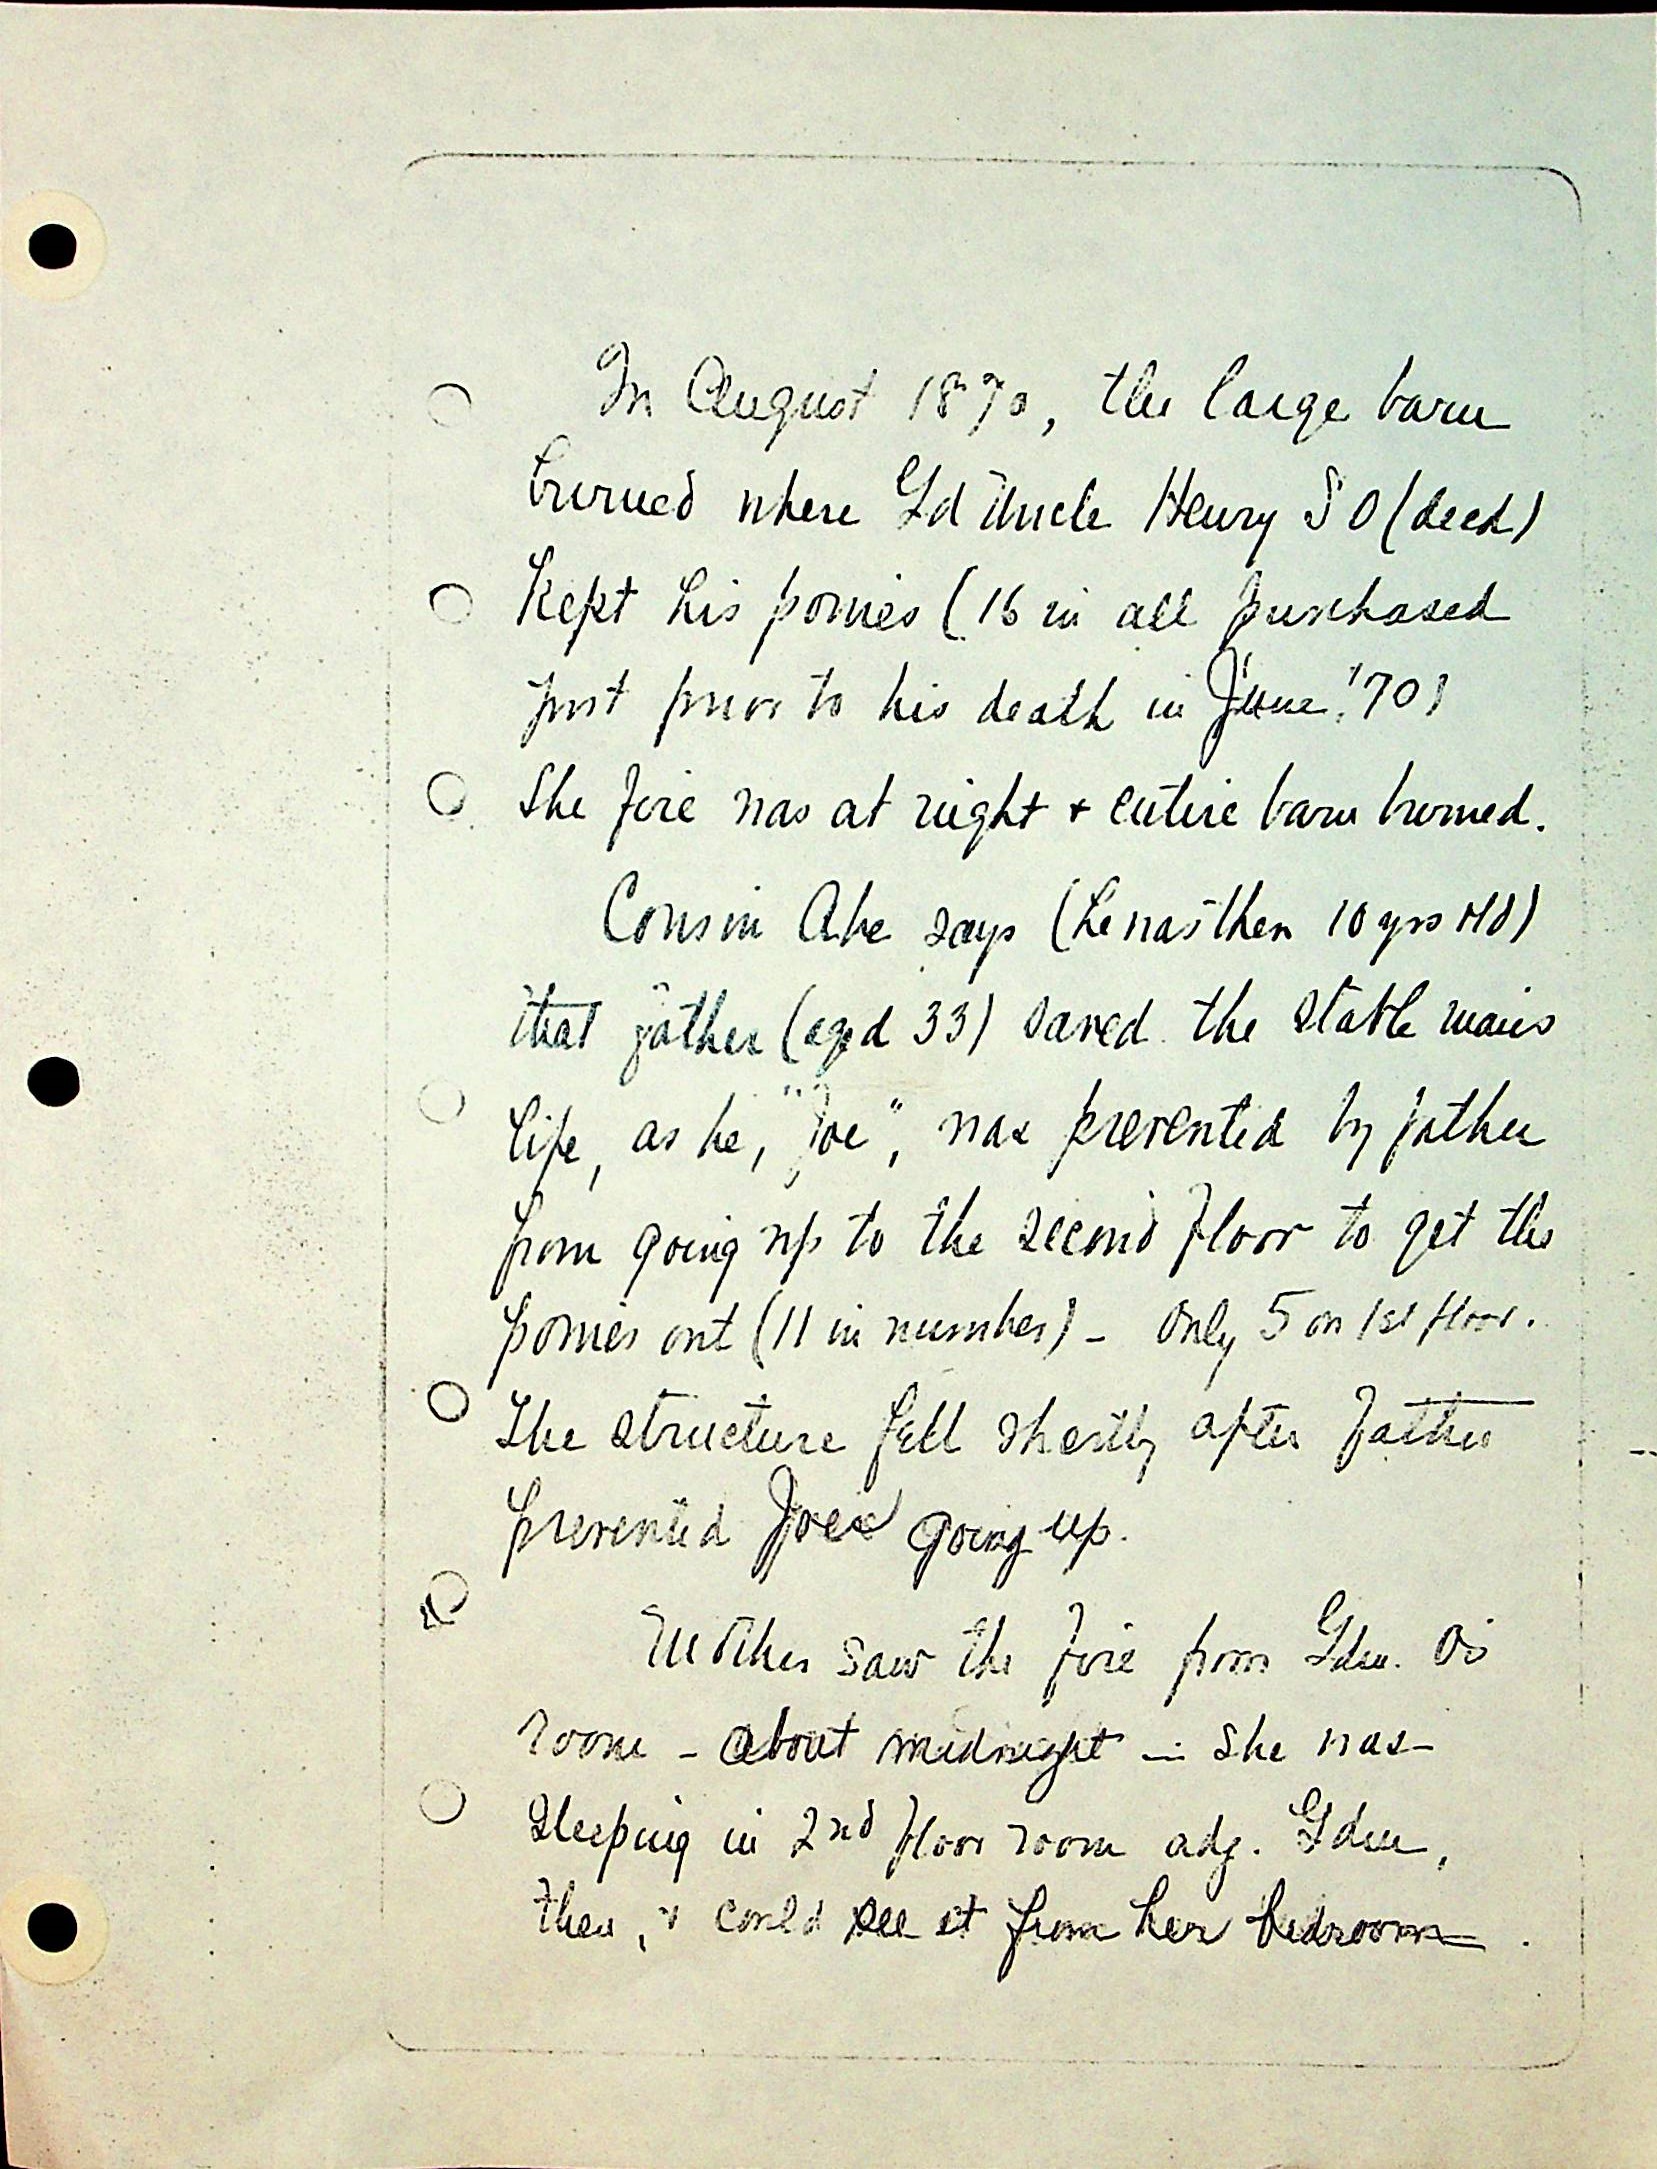 In August 1870, the large barn
burned where Gd Uncle Henry S O (decd)
kept his ponies (16 in all purchased
just prior to his death in June '70)
The fire was at night + entire barn burned.
Cousin Abe says (he was then 10 yrs old)
that father (aged 33) saved the stable mans
life, as he, "Joe", was prevented by father
from going up to the second floor to get the
ponies out (11 in number) - Only 5 on 1st floor.
The structure fell shortly after father
prevented Joe going up.
Mother saw the fire from Gdm. O's
room - about midnight - she was
sleeping in 2nd floor room adj. Gdm,
then, + could see it from her bedroom.